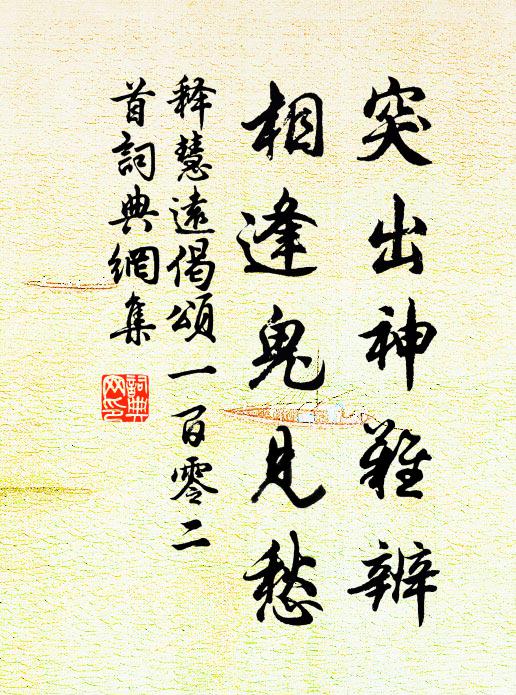 突出神難辨
相逢鬼見愁
释慧遠偈頌一百零二
首詞典網集
詞典
网印